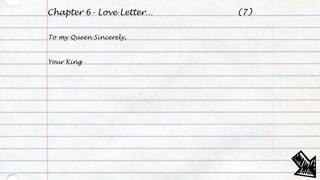 Chapter 6 - Love Letter... (7)
To my Queen Sincerely,
Your King